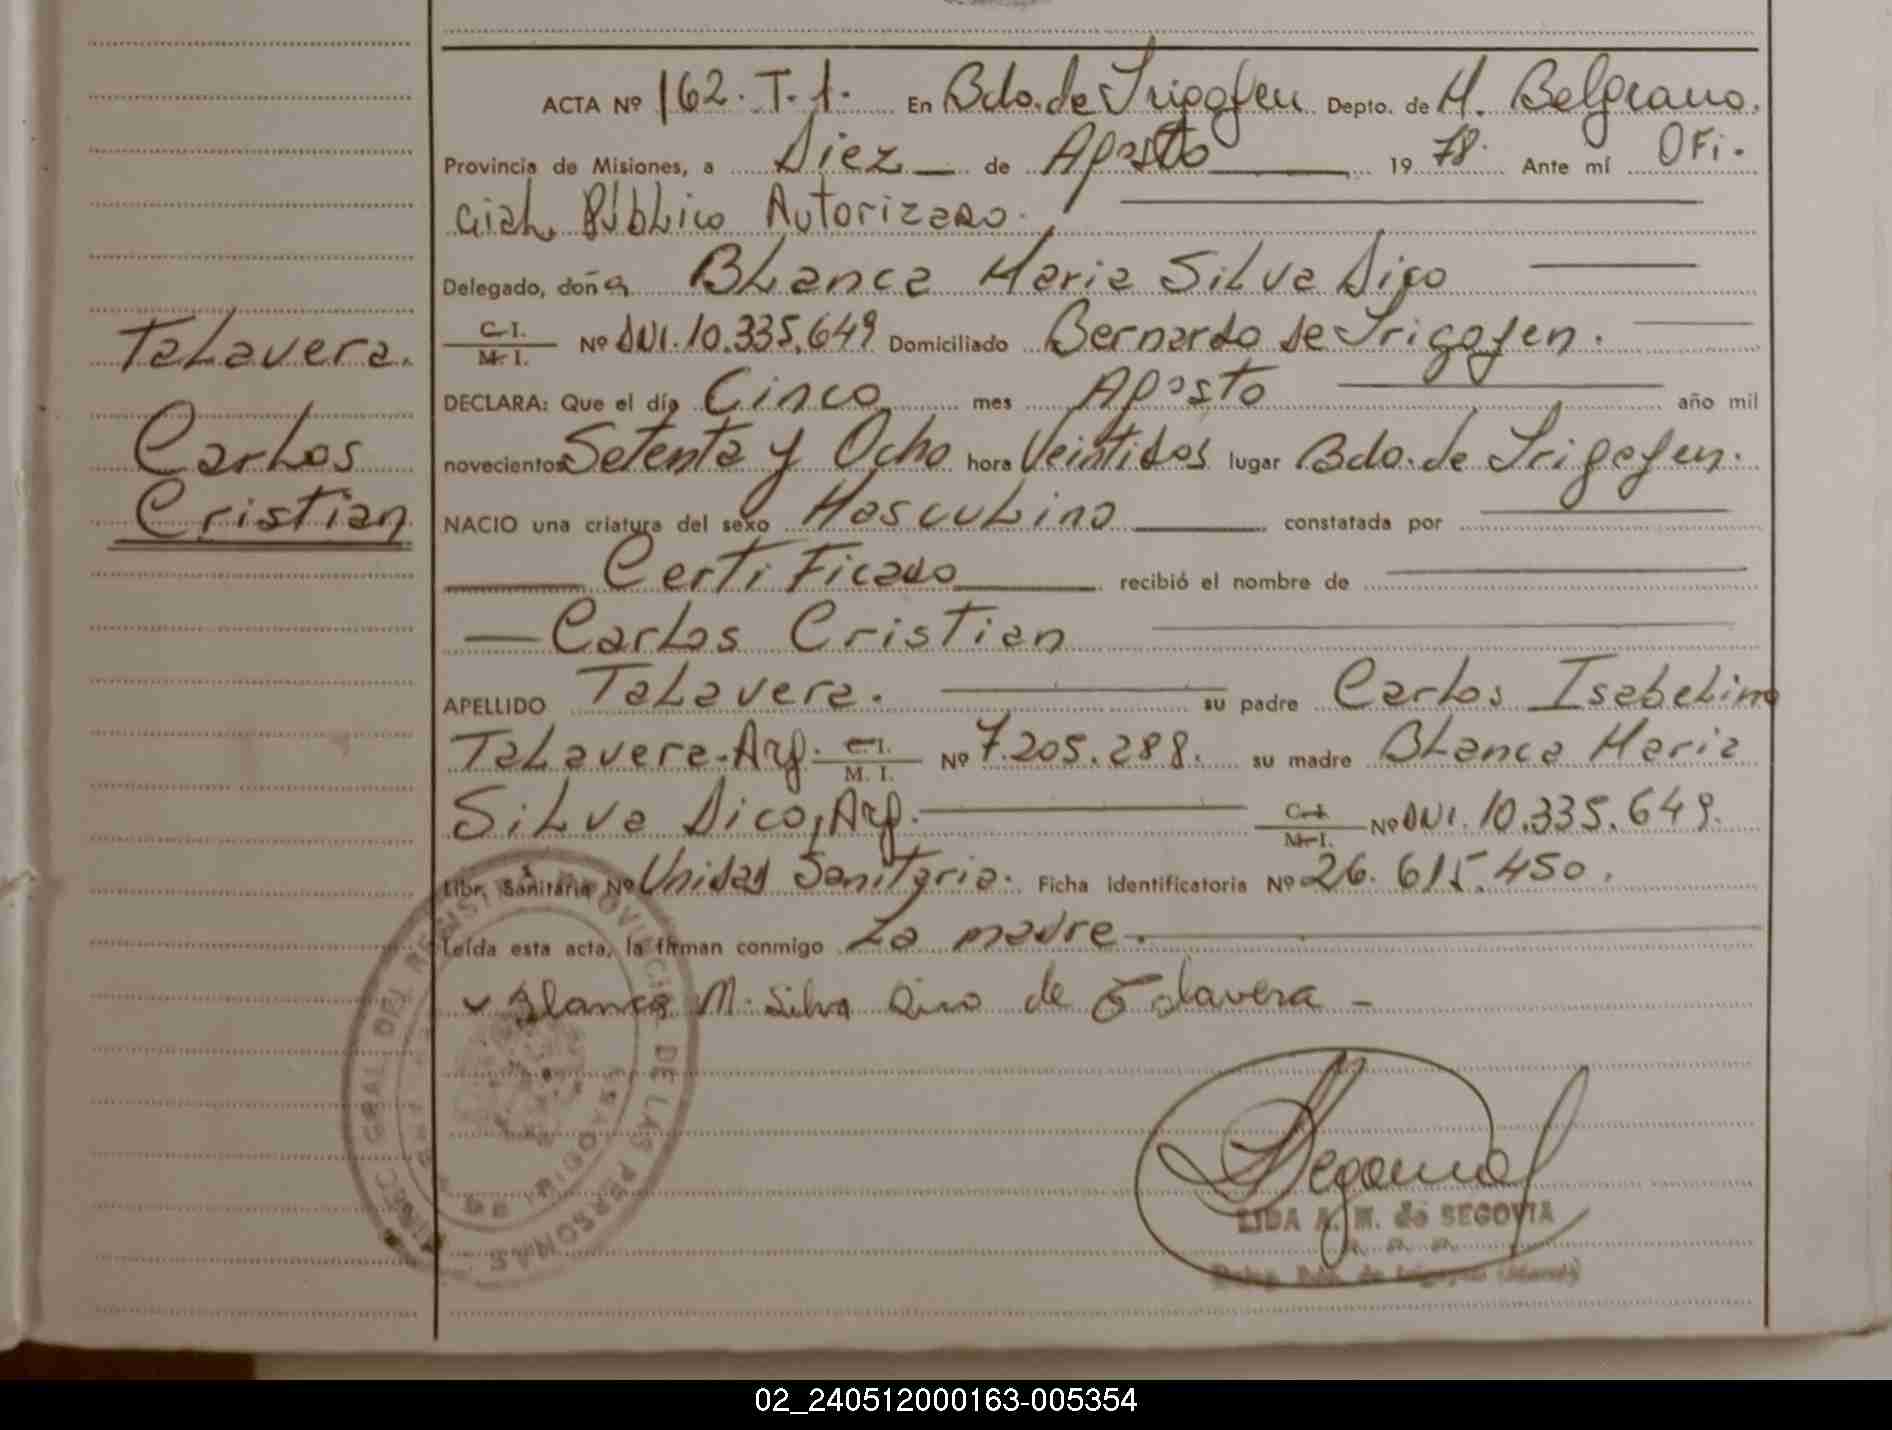 ACTA Nº 162. T. 1. En Bdo. de Irigoyen Depto. de M. Belgrano.
Provincia de Misiones, a Diez de Agosto 1978. Ante mí OFi.
cial Público Autorizado.
Delegado, doña Blanca Maria Silva Dico
C. I. / M. I. Nº DNI. 10.335.649 Domiciliado Bernardo de Irigoyen.
Talavera.
DECLARA: Que el día Cinco mes Agosto año mil
Carlos
novecientos Setenta y Ocho hora Veintidos lugar Bdo. de Irigoyen.
Cristian
NACIO una criatura del sexo Masculino constatada por
Certificado recibió el nombre de
Carlos Cristian
APELLIDO Talavera. su padre Carlos Isabelino
Talavera. Arg. C. I. / M. I. Nº 7.205.288. su madre Blanca Maria
Silva Dico, Arg. C. I. / M. I. Nº DNI. 10.335.649.
Libr. Sanitaria Nº Unidad Sanitaria. Ficha identificatoria Nº 26.615.450.
Leída esta acta, la firman conmigo La madre.
Blanca M. Silva Dico de Talavera -
DIREC. GRAL DEL REGISTRO PROVINCIAL DE LAS PERSONAS
LIDA A. M. de SEGOVIA
02_240512000163-005354